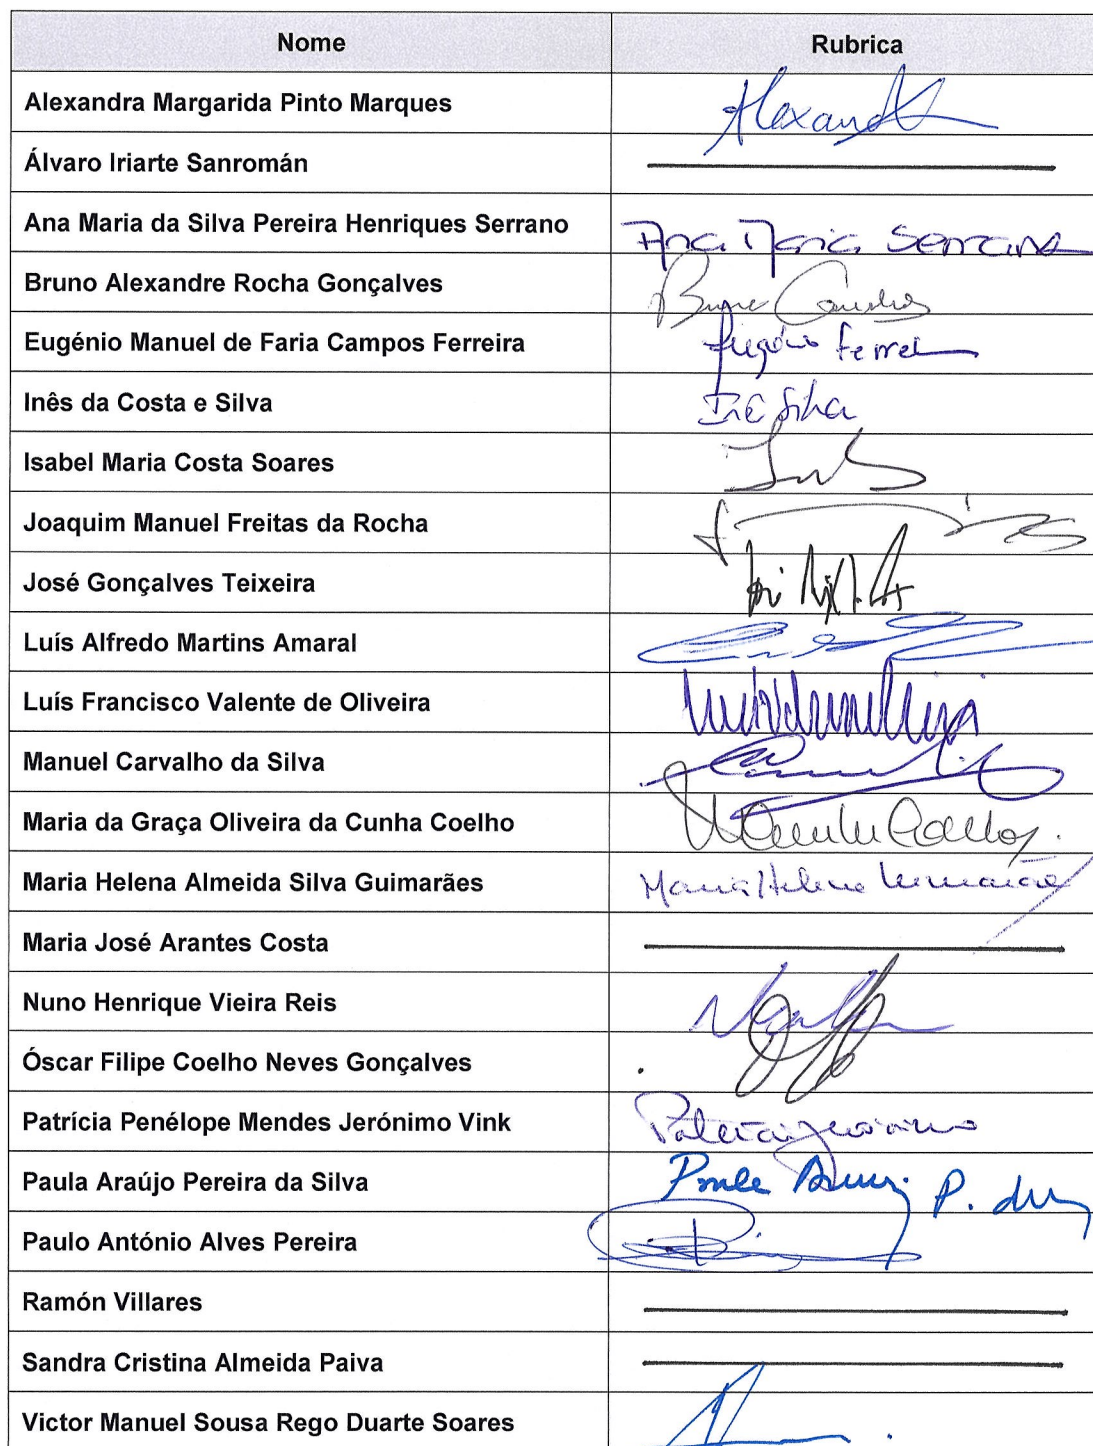 Nome Rubrica
Alexandra Margarida Pinto Marques Alexand
Álvaro Iriarte Sanromán
Ana Maria da Silva Pereira Henriques Serrano Ana Maria Serrano
Bruno Alexandre Rocha Gonçalves Bruno
Eugénio Manuel de Faria Campos Ferreira Eugénio Ferrei
Inês da Costa e Silva Inê Silva
Isabel Maria Costa Soares
Joaquim Manuel Freitas da Rocha
José Gonçalves Teixeira
Luís Alfredo Martins Amaral
Luís Francisco Valente de Oliveira
Manuel Carvalho da Silva
Maria da Graça Oliveira da Cunha Coelho Coelho
Maria Helena Almeida Silva Guimarães Maria Helena Guimarães
Maria José Arantes Costa
Nuno Henrique Vieira Reis
Óscar Filipe Coelho Neves Gonçalves
Patrícia Penélope Mendes Jerónimo Vink Patrícia Jerónimo
Paula Araújo Pereira da Silva Paula P. da
Paulo António Alves Pereira
Ramón Villares
Sandra Cristina Almeida Paiva
Victor Manuel Sousa Rego Duarte Soares